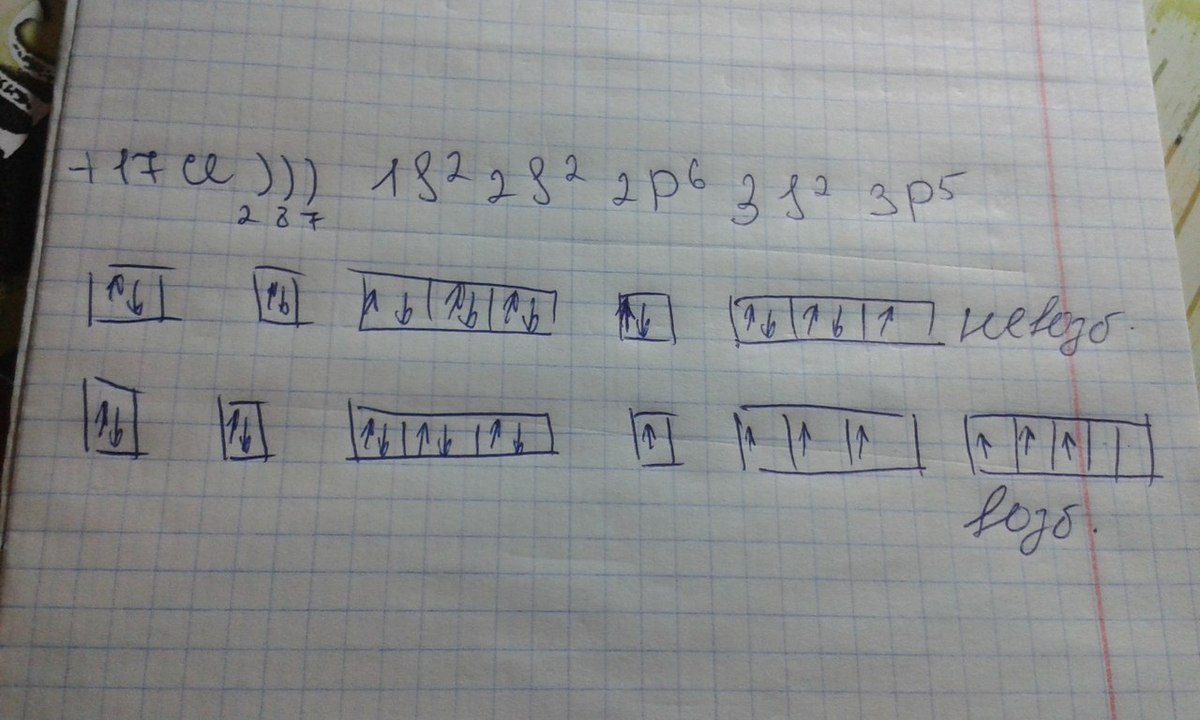 +17 Cl ))) 1S² 2S² 2P⁶ 3S² 3P⁵
2 8 7
↑↓ ↑↓ ↑↓ ↑↓ ↑↓ ↑↓ ↑↓ ↑↓ ↑ невозб.
↑↓ ↑↓ ↑↓ ↑↓ ↑↓ ↑ ↑ ↑ ↑ ↑ ↑ ↑
возб.